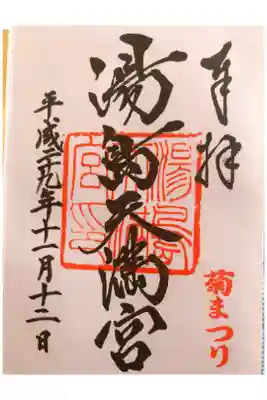 奉拝
菊まつり
湯島天満宮
湯島
平成二十九年十一月十二日